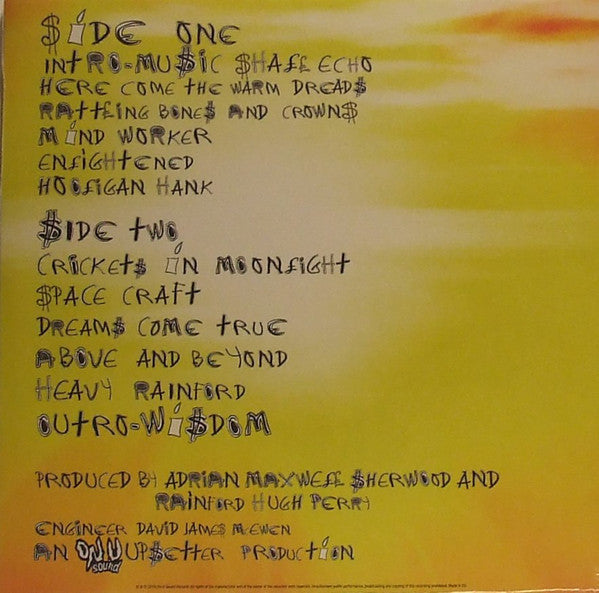 $iDE ONE
INTRO-MU$iC $HA££ ECHO
HERE COME THE WARM DREAD$
RATT£ING BONE$ AND CROWN$
MiND WORKER
EN£iGHTENED
HOO£IGAN HANK
$IDE TWO
CRiCKET$ iN MOON£iGHT
$PACE CRAFT
DREAM$ COME TRUE
ABOVE AND BEYOND
HEAVY RAINFORD
OUTRO-Wi$DOM
PRODUCED BY ADRIAN MAXWE££ $HERWOOD AND
RAINFORD HUGH PERRY
ENGINEER DAVID JAMES McEWEN
AN ON.U sound UP$ETTER PRODUCTiON